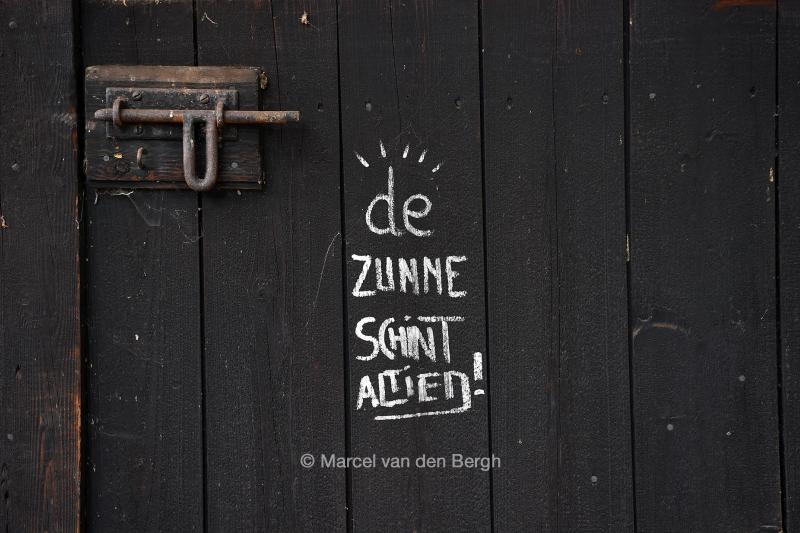 de
ZUNNE
SCHINT
ALTIED!
© Marcel van den Bergh